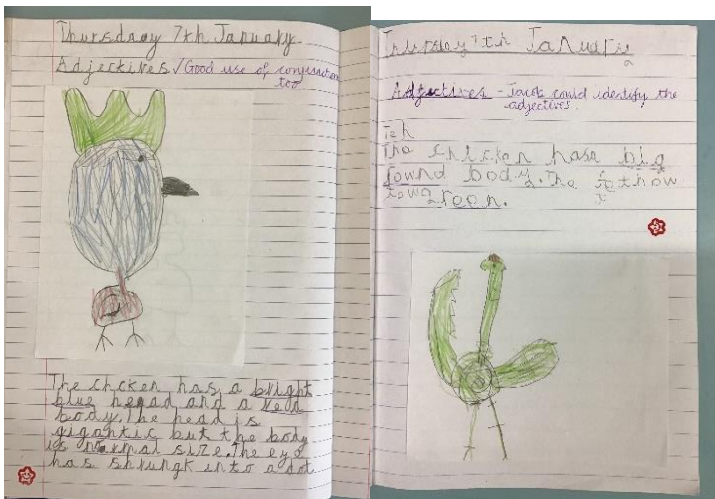 Thursday 7th January
Adjectives ✓ Good use of conjunctions
too
The chcken has a bright
blue head and a read
body. The head is
gigantic but the body
is normal size. The eye
has shrungk into a dot.
Thursday 7th January
Adjectives - could identify the
adjectives.
The chicken hase big
round body. The
green.